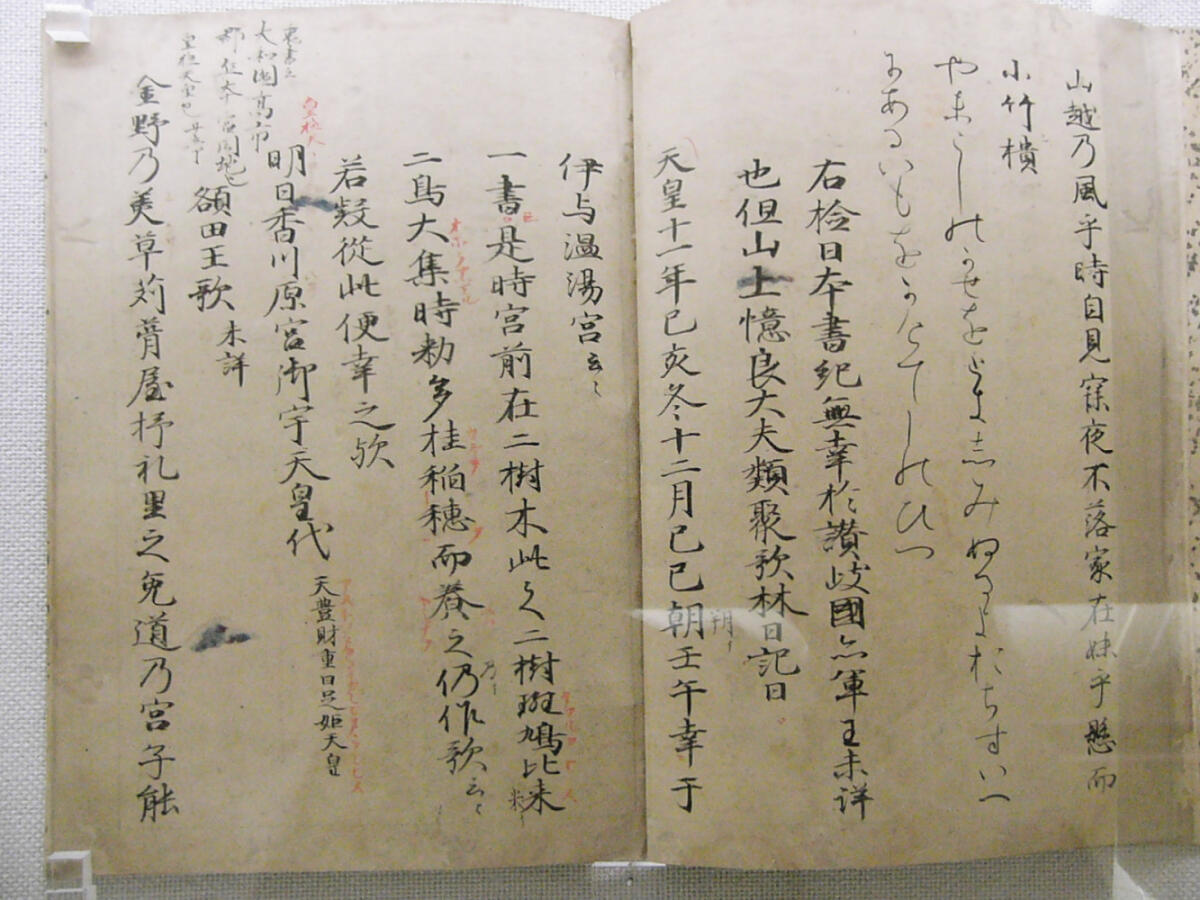 山越乃風乎時自見寐夜不落家在妹乎懸而
小竹櫃
やまこしのかせをときしみぬるよおちすいへ
にあるいもをかけてしのひつ
右検日本書紀無幸於讃岐國亦軍王未詳
也但山上憶良大夫類聚歌林曰記曰
天皇十一年己亥冬十二月己巳朝壬午幸于
朔
伊与温湯宮云々
一書是時宮前在二樹木此之二樹斑鳩比米
二鳥大集時勅多桂稲穂而養之仍作歌云々
乃
若疑従此便幸之歟
明日香川原宮御宇天皇代 天豊財重日足姫天皇
皇極天
裏書云
大和国高市
額田王歌 未詳
金野乃美草苅葺屋杼礼里之兎道乃宮子能